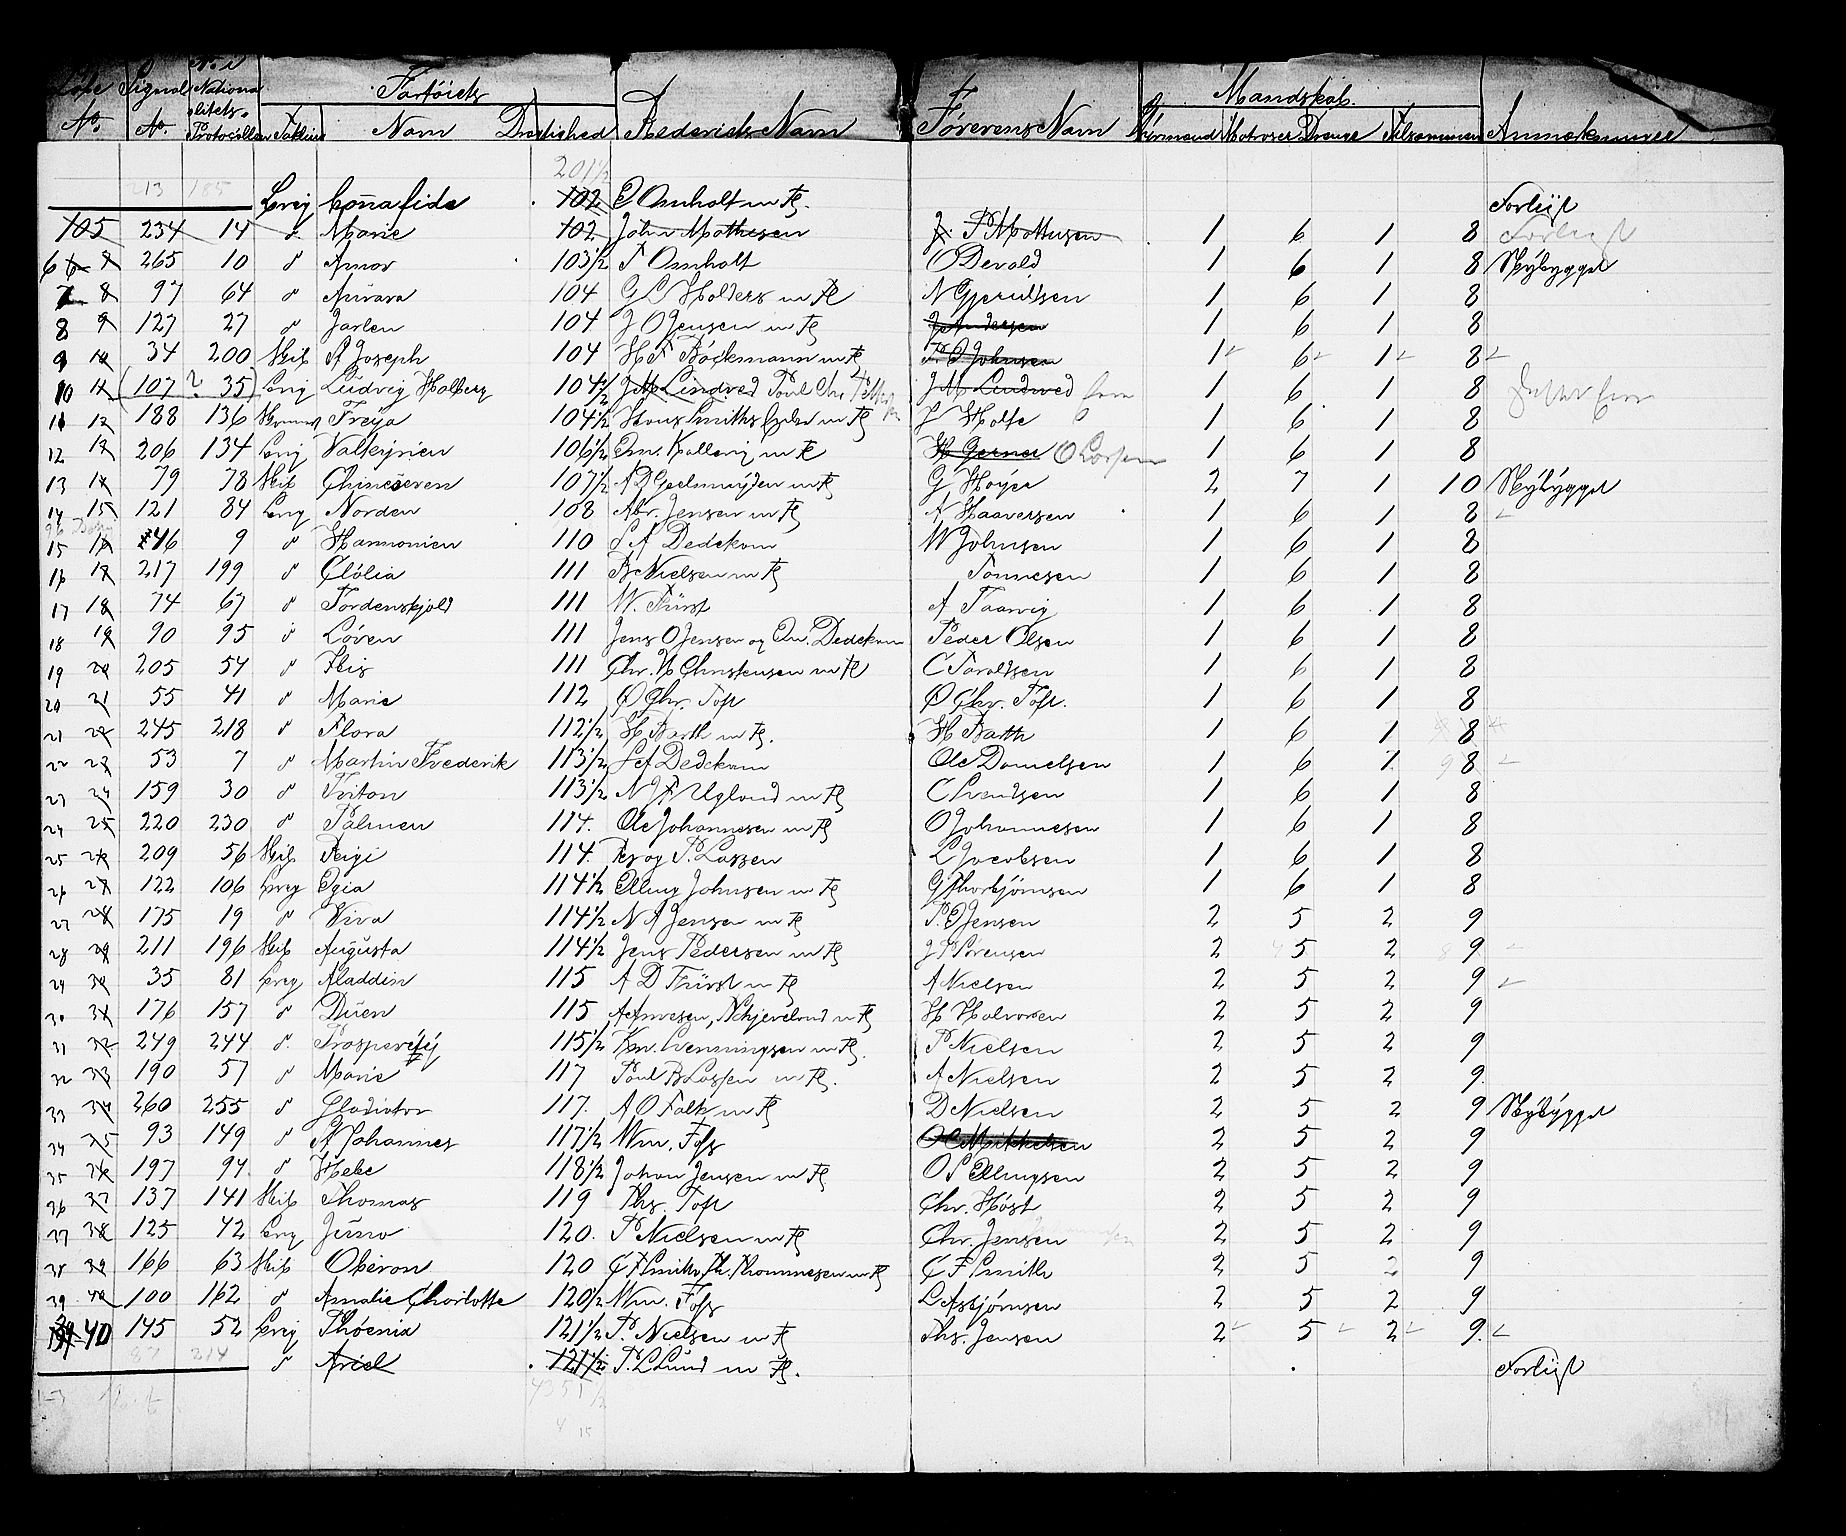 Löbe No. Signal No. No. i Nationalitets-Protocollen Fartöiets Takling Nam Drægtighed Rederiets Nam Förerens Nam Mandskab. Styrmænd Matroser Drenge Tilsammen Anmærkninger
201½
213 185 Brig Bonafide 102 P Omholt m Fl. Forliist
105 234 14 d. Marie 102 John Mathesen J. P Mathesen 1 6 1 8 Forliist
6 265 10 d Amor 103½ T Omholt O Devold 1 6 1 8 Nybygget
7 8 97 64 d Aurora 104 G C Holders m Fl N Gjeruldsen 1 6 1 8
8 9 127 27 d Jarlen 104 J O Jensen m Fl J Andersen 1 6 1 8
9 10 34 200 Skib St Joseph 104 H F Böckmann m Fl P. O. Johnsen 1 6 1 8
10 11 (107 ? 35) Brig Ludvig Holberg 104½ J M Lindved Poul Chr J M Lindved 1 6 1 8
11 12 188 136 Freya 104½ Hans Smiths Enke m Fl J Holfe 1 6 1 8
12 13 206 134 Brig Valkyrien 106½ Qm. Kallevig m Fl H Gerner O Larsen 1 6 1 8
13 14 79 78 Skib Chineseren 107½ A D Geelmuyden m Fl G Höyer 2 7 1 10 Nybygget
14 15 121 84 Brig Norden 108 Abr. Jensen m Fl A Haaversen 1 6 1 8
15 16 46 9 d Harmonien 110 S A Dedekam W Johnsen 1 6 1 8
16 17 217 199 d Clölia 111 B Nielsen m Fl Tönnesen 1 6 1 8
17 18 74 67 d Tordenskjold 111 W. Fürst A Taarvig 1 6 1 8
18 19 90 95 d Löven 111 Jens O Jensen og Qm. Dedekam Peder Olsen 1 6 1 8
19 20 205 54 d Flis 111 Chr. H Christensen m Fl C Taraldsen 1 6 1 8
20 21 55 41 d Marie 112 Ø Chr. Toft Ø Chr. Toft. 1 6 1 8
21 22 245 218 d Flora 112½ H Barth m Fl. H Barth 1 6 1 8
22 23 53 7 d Martin Frederik 113½ S A Dedekam Ole Danielsen 1 6 1 9 8
23 24 159 30 d Triton 113½ N J F Ugland m Fl C Svendsen 1 6 1 8
24 25 220 230 d Palmen 114. Ole Johannesen m Fl O Johannesen 1 6 1 8
25 26 209 56 Skib Feigi 114. Th og P. Lassen L Jacobsen 1 6 1 8
26 27 122 106 Brig Egia 114½ Elling Johnsen m Fl G Thorbjörnsen 1 6 1 8
27 28 175 19 d Viva 114½ N A Jensen m Fl P. O Jensen 2 5 2 9
28 29 211 196 Skib Augusta 114½ Jens Pedersen m Fl J P Sörensen 2 5 2 9
29 30 35 81 Brig Aladdin 115 A D Fürst m Fl A Nielsen 2 5 2 9
30 31 176 157 d Duen 115 A Arnesen, N Kjevelund m Fl H Halvorsen 2 5 2 9
31 32 249 244 d. Prosperity 115½ Km. Henningsen m Fl. P Nielsen 2 5 2 9
32 33 190 57 d Marie 117 Poul B Lassen m Fl. A Nielsen 2 5 2 9
33 34 260 255 d Gladiator 117. A O Falk m Fl D Nielsen 2 5 2 9 Nybygget
34 35 93 149 d St Johannes 117½ Wm. Foss O C Mikkelsen 2 5 2 9
35 36 197 94 d Hebe 118½ Johan Jensen m Fl O S Ellingsen 2 5 2 9
36 37 137 141 Skib Thomas 119 Ths. Toft Chr. Höst 2 5 2 9
37 38 125 42 Brig Juno 120. P Nielsen m Fl Chr. Jensen 2 5 2 9
38 39 166 63 Skib Oberon 120 C F Smith, Th. Thommesen m Fl C F Smith 2 5 2 9
39 40 100 162 d Amalie Charlotte 120½ Wm. Foss L Asbjörnsen 2 5 2 9
40 145 52 Brig Phoenix 121½ P. Nielsen m Fl Ths. Jensen 2 5 2 9
87 214 d Ariel 121½ P. L Lund m Fl. Forliist
4355½
4 15